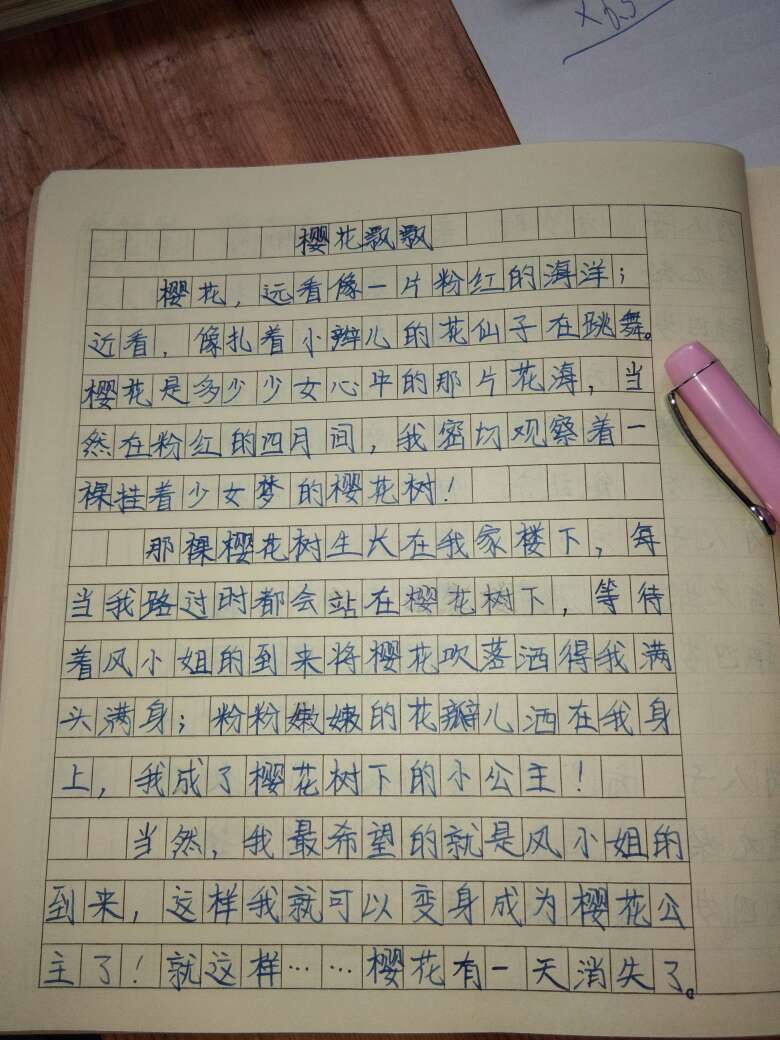 ×65
樱花飘飘
樱花，远看像一片粉红的海洋；
近看，像扎着小辫儿的花仙子在跳舞。
樱花是多少少女心中的那片花海，当
然在粉红的四月间，我密切观察着一
裸挂着少女梦的樱花树！
那裸樱花树生长在我家楼下，每
当我路过时都会站在樱花树下，等待
着风小姐的到来将樱花吹落洒得我满
头满身；粉粉嫩嫩的花瓣儿洒在我身
上，我成了樱花树下的小公主！
当然，我最希望的就是风小姐的
到来，这样我就可以变身成为樱花公
主了！就这样……樱花有一天消失了。